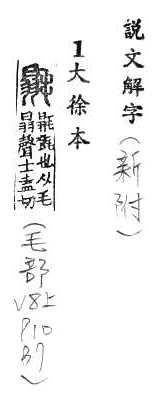 說文解字(新附)
1大徐本
毾
毾㲪也从毛
𦐇聲土盍切
(毛部
V8上
P10
B7)